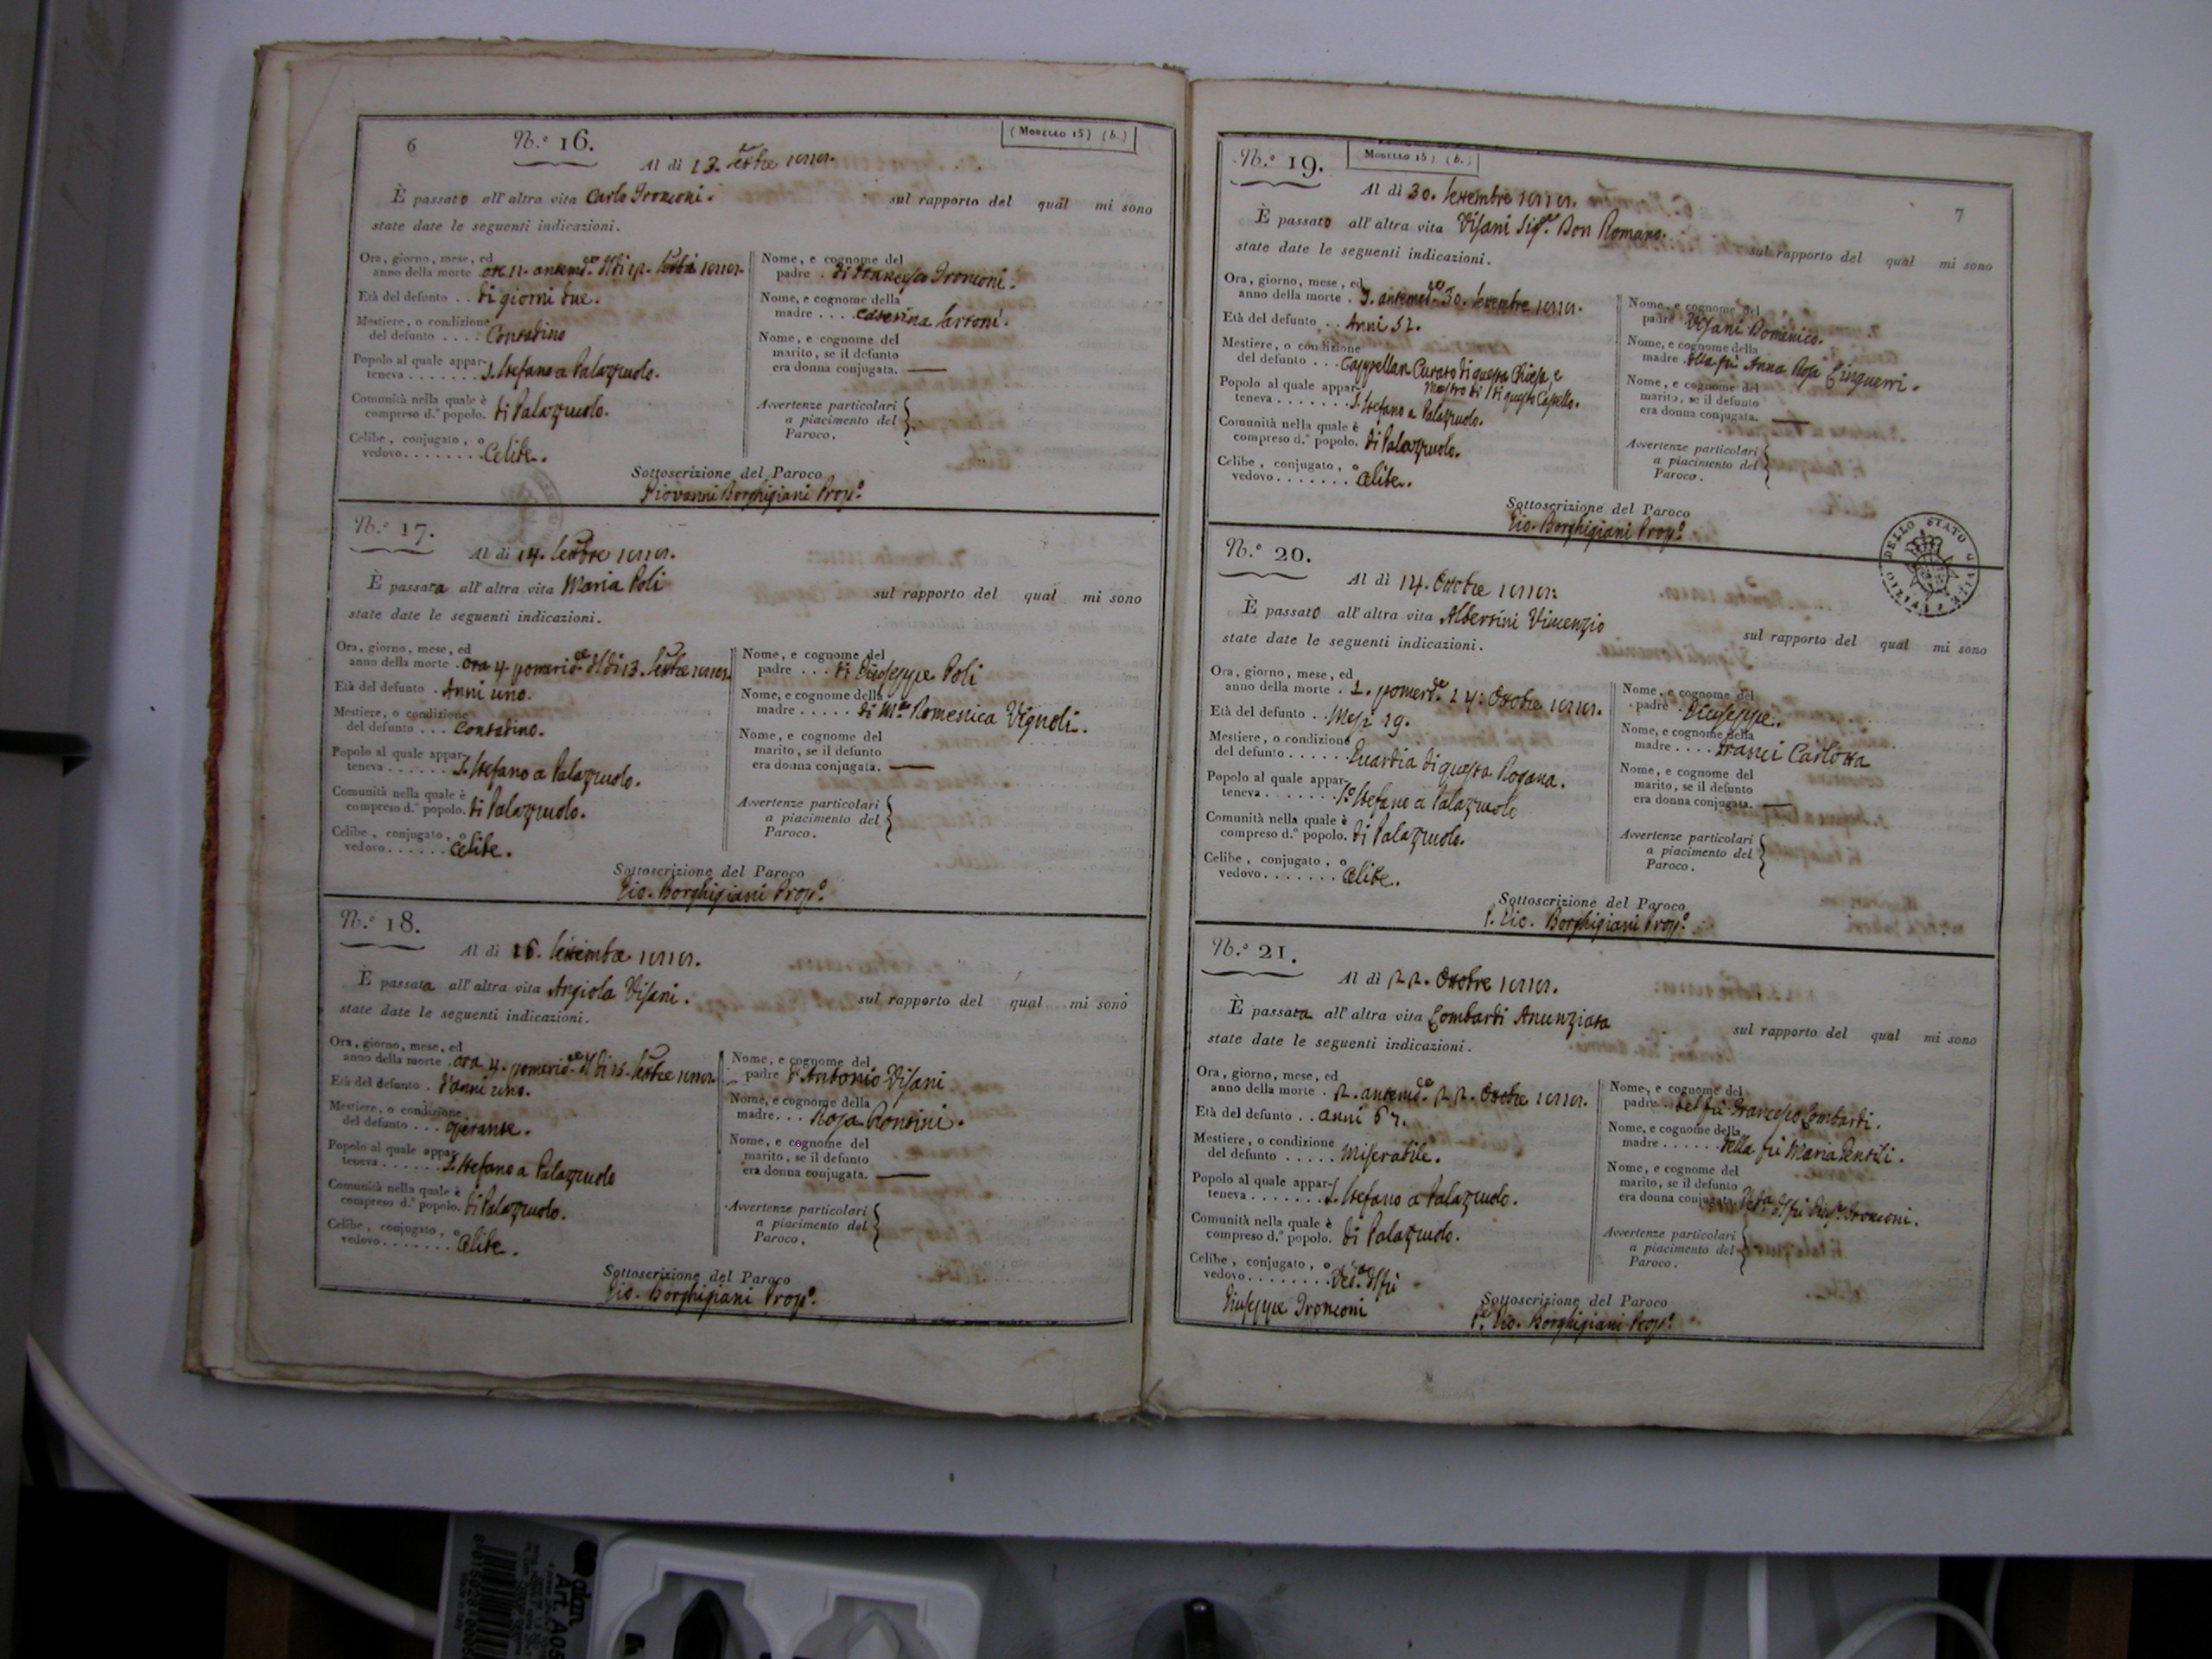 6
N.º 16.
(Modello 15) (b.)
Al dì 13. 7mbre
È passato all' altra vita Carlo Tronconi. sul rapporto del qual mi sono
state date le seguenti indicazioni.
Ora, giorno, mese, ed
anno della morte
Età del defunto . . di giorni due.
Mestiere, o condizione
del defunto . . . . Contadino
Popolo al quale appar-
teneva . . . . . . . S. Stefano a Palazzuolo.
Comunità nella quale è
compreso d.º popolo. di Palazzuolo.
Celibe, conjugato, o
vedovo. . . . . . . . Celibe.
Nome, e cognome del
padre . di Francesco Tronconi.
Nome, e cognome della
madre . . . . Caterina Sartoni.
Nome, e cognome del
marito, se il defunto
era donna conjugata. —
Avvertenze particolari
a piacimento del
Paroco.
Sottoscrizione del Paroco
Giovanni Borghigiani Prop.º
N.º 17.
Al dì 14.
È passata all' altra vita Maria Poli sul rapporto del qual mi sono
state date le seguenti indicazioni.
Ora, giorno, mese, ed
anno della morte . ora 4. pomerid.ne
Età del defunto . Anni uno.
Mestiere, o condizione
del defunto . . . Contadino.
Popolo al quale appar-
teneva . . . . . . S. Stefano a Palazzuolo.
Comunità nella quale è
compreso d.º popolo. di Palazzuolo.
Celibe, conjugato, o
vedovo. . . . . . celibe.
Nome, e cognome del
padre . . . di Giuseppe Poli
Nome, e cognome della
madre . . . . . di M.a Domenica Vignoli.
Nome, e cognome del
marito, se il defunto
era donna conjugata. —
Avvertenze particolari
a piacimento del
Paroco.
Sottoscrizione del Paroco
Gio. Borghigiani Prop.º
N.º 18.
Al dì 16. Settembre
È passata all' altra vita Angiola Visani. sul rapporto del qual mi sono
state date le seguenti indicazioni.
Ora, giorno, mese, ed
anno della morte . ora 4. pomerid.ne
Età del defunto . d'anni uno.
Mestiere, o condizione
del defunto . . . operante.
Popolo al quale appar-
teneva . . . . . . S. Stefano a Palazzuolo
Comunità nella quale è
compreso d.º popolo. di Palazzuolo.
Celibe, conjugato, o
vedovo. . . . . . . Celibe.
Nome, e cognome del
padre d'Antonio Visani
Nome, e cognome della
madre. . . Rosa Rontini.
Nome, e cognome del
marito, se il defunto
era donna conjugata. —
Avvertenze particolari
a piacimento del
Paroco.
Sottoscrizione del Paroco
Gio. Borghigiani Prop.º
N.º 19.
Modello 15) (b.)
7
Al dì 30. Settembre
È passato all' altra vita Visani Sig.e Don Romano. sul rapporto del qual mi sono
state date le seguenti indicazioni.
Ora, giorno, mese, ed
anno della morte
Età del defunto . . Anni 52.
Mestiere, o condizione
del defunto . . . Cappellan Curato di questa Chiesa, e
Popolo al quale appar-
teneva . . . . . . . S. Stefano a Palazzuolo.
Comunità nella quale è
compreso d.º popolo. di Palazzuolo.
Celibe, conjugato, o
vedovo. . . . . . . celibe.
Nome, e cognome del
padre Visani Domenico.
Nome, e cognome della
madre . della fù Anna Rosa Cinguerri.
Nome, e cognome del
marito, se il defunto
era donna conjugata. —
Avvertenze particolari
a piacimento del
Paroco.
Sottoscrizione del Paroco
Gio. Borghigiani Prop.º
DELLO STATO CIVILE
N.º 20.
Al dì 14. Ottobre
È passato all' altra vita Albertini Vincenzio sul rapporto del qual mi sono
state date le seguenti indicazioni.
Ora, giorno, mese, ed
anno della morte
Età del defunto . . Mesi 19.
Mestiere, o condizione
del defunto . . . . . . Guardia di questa Dogana.
Popolo al quale appar-
teneva . . . . . . . S. Stefano a Palazzuolo
Comunità nella quale è
compreso d.º popolo. di Palazzuolo.
Celibe, conjugato, o
vedovo. . . . . . . celibe.
Nome, e cognome del
padre . Giuseppe.
Nome, e cognome della
madre . . . . Carlotta
Nome, e cognome del
marito, se il defunto
era donna conjugata. —
Avvertenze particolari
a piacimento del
Paroco.
Sottoscrizione del Paroco
P. Gio. Borghigiani Prop.º
N.º 21.
Al dì 22. Ottobre
È passata all' altra vita Lombardi Anunziata sul rapporto del qual mi sono
state date le seguenti indicazioni.
Ora, giorno, mese, ed
anno della morte
Età del defunto . . anni
Mestiere, o condizione
del defunto . . . . . Miserabile.
Popolo al quale appar-
teneva . . . . . . . S. Stefano a Palazzuolo.
Comunità nella quale è
compreso d.º popolo. di Palazzuolo.
Celibe, conjugato, o
vedovo. . . . . . . . Ved.a del fù
Giuseppe Tronconi
Nome, e cognome del
padre . . del fù Francesco Lombardi.
Nome, e cognome della
madre . . . . . . della fù Maria
Nome, e cognome del
marito, se il defunto
era donna conjugata. Ved.a del fù Gius.e Tronconi.
Avvertenze particolari
a piacimento del
Paroco.
Sottoscrizione del Paroco
P.e Gio. Borghigiani Prop.º
adan
Art. A05